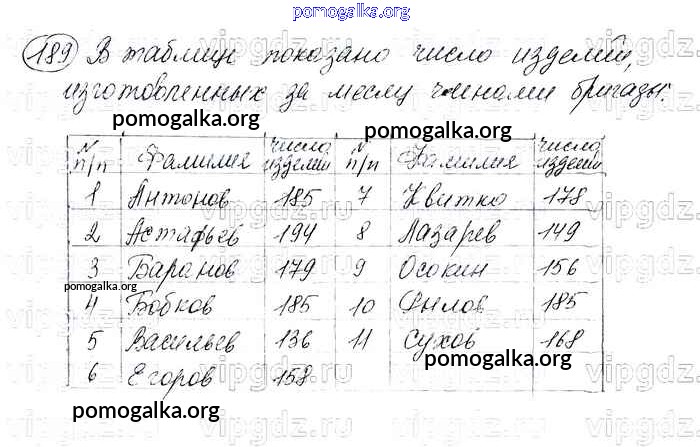 pomogalka.org
189 В таблице показано число изделий,
изготовленных за месяц членами бригады:
pomogalka.org pomogalka.org
№ п/п Фамилия Число изделий № п/п Фамилия Число изделий
1 Антонов 185 7 Квитко 178
2 Астафьев 194 8 Лазарев 149
3 Баранов 179 9 Осокин 156
pomogalka.org
4 Бобков 185 10 Фылов 185
5 Васильев 136 11 Сухов 168
pomogalka.org
6 Егоров 158
pomogalka.org
vipgdz.ru